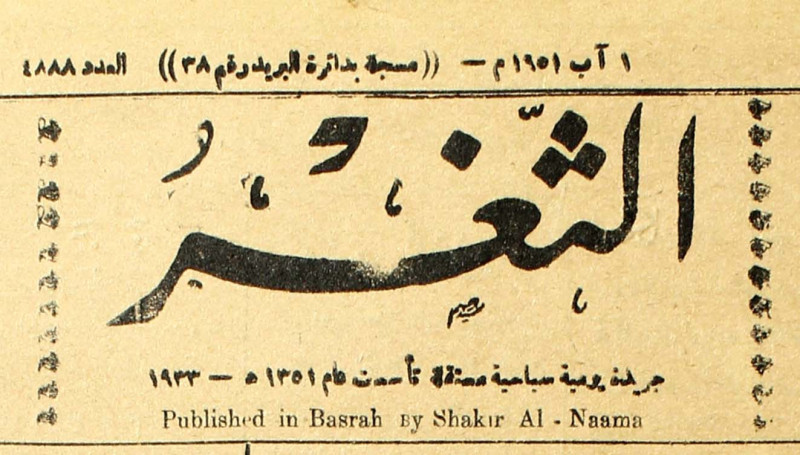 ١ آب ١٩٥١ م — ((مسجلة بدائرة البريد رقم ٣٨)) العدد ٤٨٨٨
الثَّغْرُ
جريدة يومية سياسية مستقلة تأسست عام ١٣٥١ ه — ١٩٣٣
Published in Basrah By Shakir Al - Naama